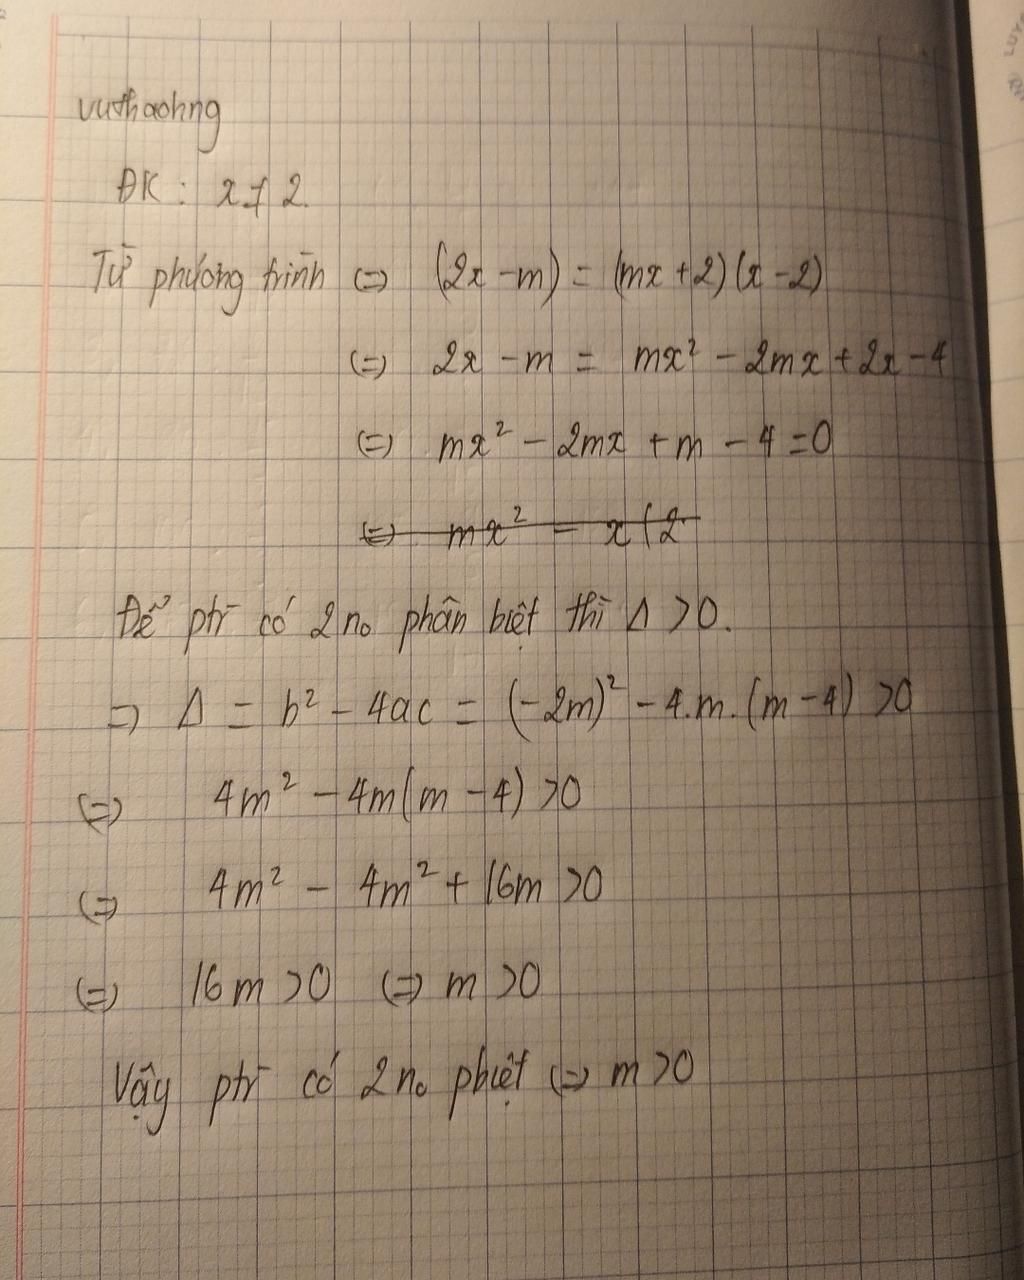 vuthaohng
ĐK : x ≠ 2.
Từ phương trình (=) (2x - m) = (mx + 2)(x - 2)
(=) 2x - m = mx² - 2mx + 2x - 4
(=) mx² - 2mx + m - 4 = 0
Để ptr có 2 no phân biệt thì Δ > 0.
=) Δ = b² - 4ac = (-2m)² - 4.m.(m - 4) > 0
(=) 4m² - 4m(m - 4) > 0
(=) 4m² - 4m² + 16m > 0
(=) 16m > 0 (=) m > 0
Vậy ptr có 2 no pbiệt (=) m > 0